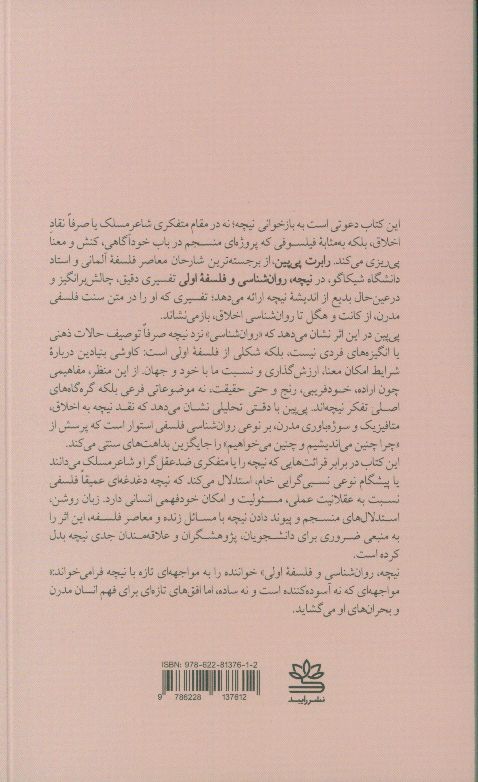 این کتاب دعوتی است به بازخوانی نیچه؛ نه در مقام متفکری شاعرمسلک یا صرفاً نقادِ
اخلاق، بلکه به‌مثابهٔ فیلسوفی که پروژه‌ای منسجم در باب خودآگاهی، کنش و معنا
پی‌ریزی می‌کند. رابرت پی‌پین، از برجسته‌ترین شارحان معاصر فلسفهٔ آلمانی و استاد
دانشگاه شیکاگو، در نیچه، روان‌شناسی و فلسفهٔ اولی تفسیری دقیق، چالش‌برانگیز و
درعین‌حال بدیع از اندیشهٔ نیچه ارائه می‌دهد؛ تفسیری که او را در متن سنت فلسفی
مدرن، از کانت و هگل تا روان‌شناسی اخلاق، بازمی‌نشاند.
پی‌پین در این اثر نشان می‌دهد که «روان‌شناسی» نزد نیچه صرفاً توصیف حالات ذهنی
یا انگیزهای فردی نیست، بلکه شکلی از فلسفهٔ اولی است: کاوشی بنیادین دربارهٔ
شرایط امکان معنا، ارزش‌گذاری و نسبت ما با خود و جهان. از این منظر، مفاهیمی
چون اراده، خودفریبی، رنج و حتی حقیقت، نه موضوعاتی فرعی بلکه گره‌گاه‌های
اصلی تفکر نیچه‌اند. پی‌پین با دقتی تحلیلی نشان می‌دهد که نقد نیچه به اخلاق،
متافیزیک و سوژه‌باوری مدرن، بر نوعی روان‌شناسی فلسفی استوار است که پرسش از
«چرا چنین می‌اندیشیم و چنین می‌خواهیم» را جایگزین بداهت‌های سنتی می‌کند.
این کتاب در برابر قرائت‌هایی که نیچه را یا متفکری ضدعقل‌گرا و شاعرمسلک می‌دانند
یا پیشگام نوعی نسبی‌گرایی خام، استدلال می‌کند که نیچه دغدغه‌ای عمیقاً فلسفی
نسبت به عقلانیت عملی، مسئولیت و امکان خودفهمی انسانی دارد. زبان روشن،
استدلال‌های منسجم و پیوند دادن نیچه با مسائل زنده و معاصر فلسفه، این اثر را
به منبعی ضروری برای دانشجویان، پژوهشگران و علاقه‌مندان جدی نیچه بدل
کرده است.
نیچه، روان‌شناسی و فلسفهٔ اولی» خواننده را به مواجهه‌ای تازه با نیچه فرامی‌خواند:«
مواجهه‌ای که نه آسوده‌کننده است و نه ساده، اما افق‌های تازه‌ای برای فهم انسان مدرن
و بحران‌های او می‌گشاید.
ISBN: 978-622-81376-1-2
9 786228 137612
نشر رایبد